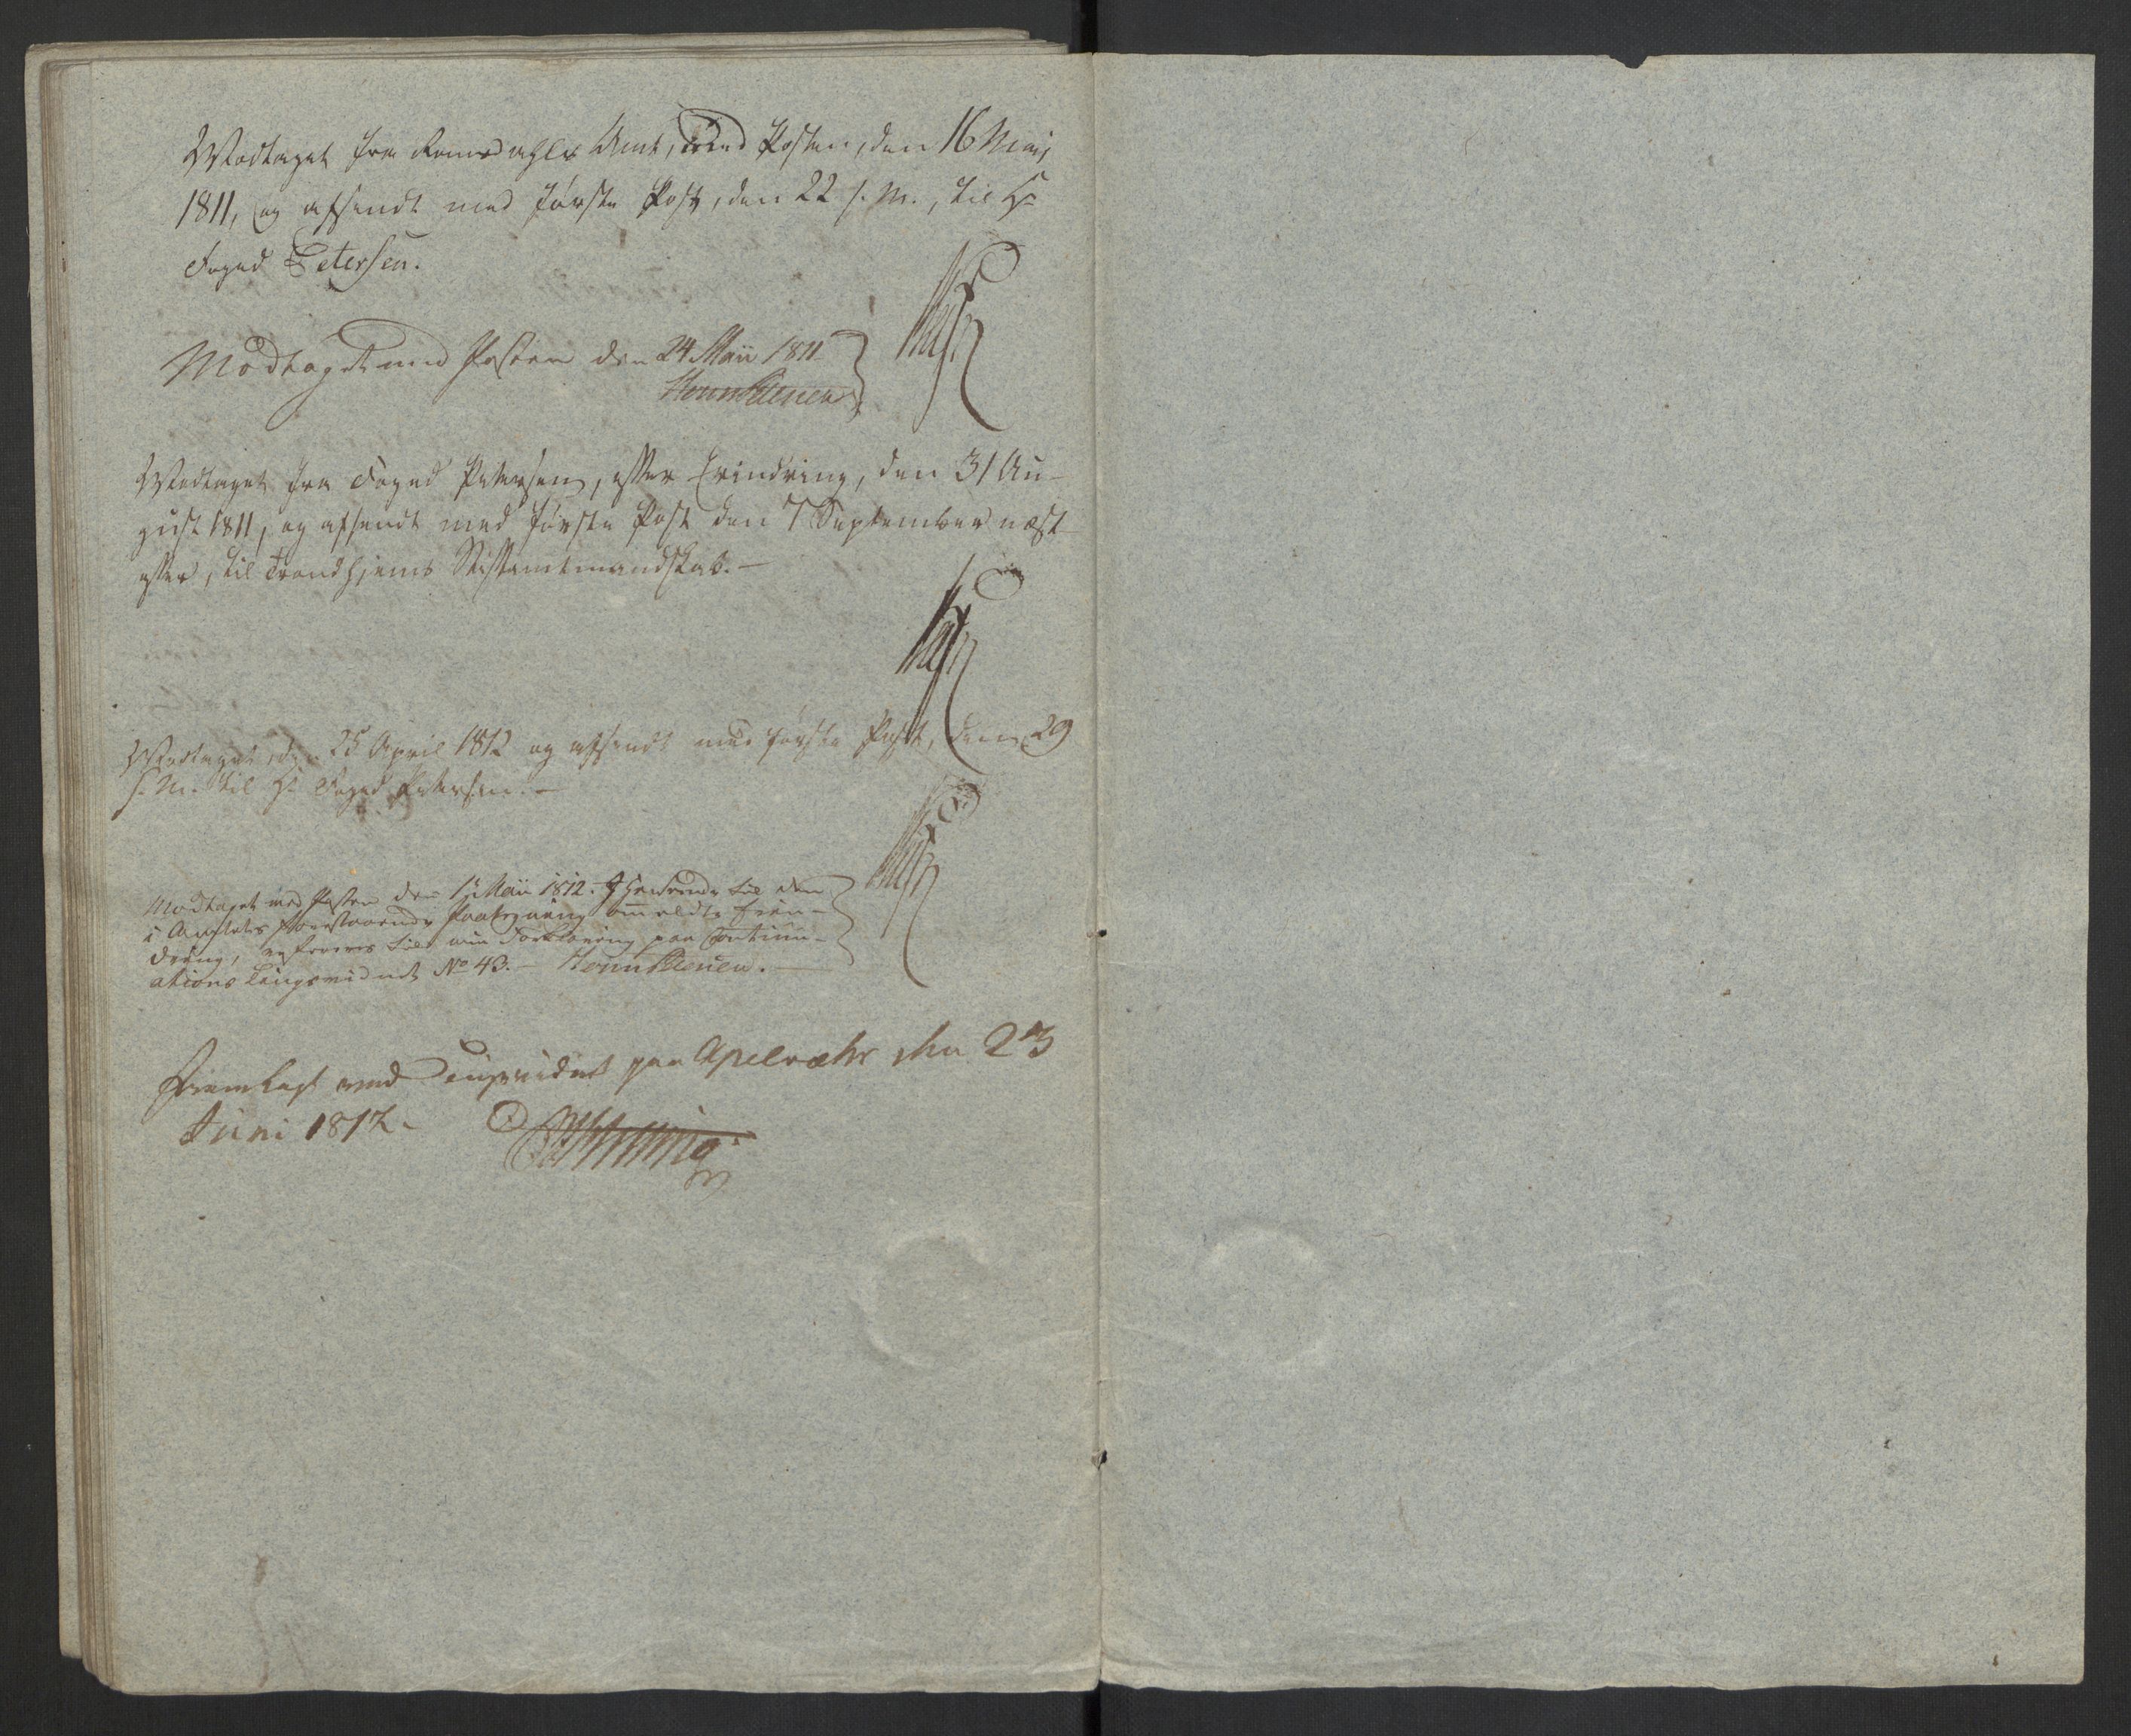 Modtaget fra Romsdahls Amt, med Posten, den 16 Maij
1811, og afsendt med første Post, den 22 s. M., til Hr
Foged Petersen.
Modtaget med Posten den 24 Maii 1811
Modtaget fra Foged Petersen, efter Erindring, den 31 Au-
gust 1811, og afsendt med første Post den 7 September næst
efter, til Trondhjems Stiftamtmandskab. -
Modtaget den 25 April 1812 og afsendt med første Post, den 29
s. M. til Hr Foged Petersen. -
Modtaget med Posten den 1ste Maii 1812. I Henseende til den
i Amtets foranstaaende Paategning ommeldte Erin-
dring, refereres til min Forklaring paa Continu-
ations Tingsvidnet No 43. -
Fremlagt ved Tingsvidnet paa Apelvær den 23
Juni 1812.